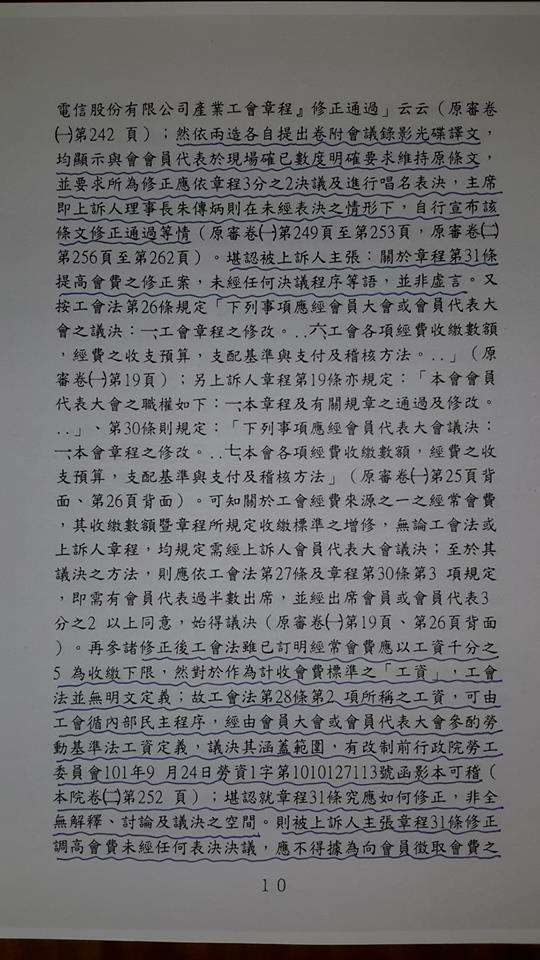 電信股份有限公司產業工會章程』修正通過」云云（原審卷
㈠第242 頁）；然依兩造各自提出卷附會議錄影光碟譯文，
均顯示與會會員代表於現場確已數度明確要求維持原條文，
並要求所為修正應依章程3分之2決議及進行唱名表決，主席
即上訴人理事長朱傳炳則在未經表決之情形下，自行宣布該
條文修正通過等情（原審卷㈠第249頁至第253頁，原審卷㈡
第256頁至第262頁）。堪認被上訴人主張：關於章程第31條
提高會費之修正案，未經任何決議程序等語，並非虛言。又
按工會法第26條規定「下列事項應經會員大會或會員代表大
會之議決：一、工會章程之修改。..六、工會各項經費收繳數額
，經費之收支預算，支配基準與支付及稽核方法。..」（原
審卷㈠第19頁）；另上訴人章程第19條亦規定：「本會會員
代表大會之職權如下：一、本章程及有關規章之通過及修改。
..」、第30條則規定：「下列事項應經會員代表大會議決：
一、本會章程之修改。..七、本會各項經費收繳數額，經費之收
支預算，支配基準與支付及稽核方法」（原審卷㈠第25頁背
面、第26頁背面）。可知關於工會經費來源之一之經常會費
，其收繳數額暨章程所規定收繳標準之增修，無論工會法或
上訴人章程，均規定需經上訴人會員代表大會議決；至於其
議決之方法，則應依工會法第27條及章程第30條第3 項規定
，即需有會員代表過半數出席，並經出席會員或會員代表3
分之2 以上同意，始得議決（原審卷㈠第19頁、第26頁背面
）。再參諸修正後工會法雖已訂明經常會費應以工資千分之
5 為收繳下限，然對於作為計收會費標準之「工資」，工會
法並無明文定義；故工會法第28條第2 項所稱之工資，可由
工會循內部民主程序，經由會員大會或會員代表大會參酌勞
動基準法工資定義，議決其涵蓋範圍，有改制前行政院勞工
委員會101年9 月24日勞資1字第1010127113號函影本可稽（
本院卷㈡第252 頁）；堪認就章程31條究應如何修正，非全
無解釋、討論及議決之空間。則被上訴人主張章程31條修正
調高會費未經任何表決決議，應不得據為向會員徵取會費之
10